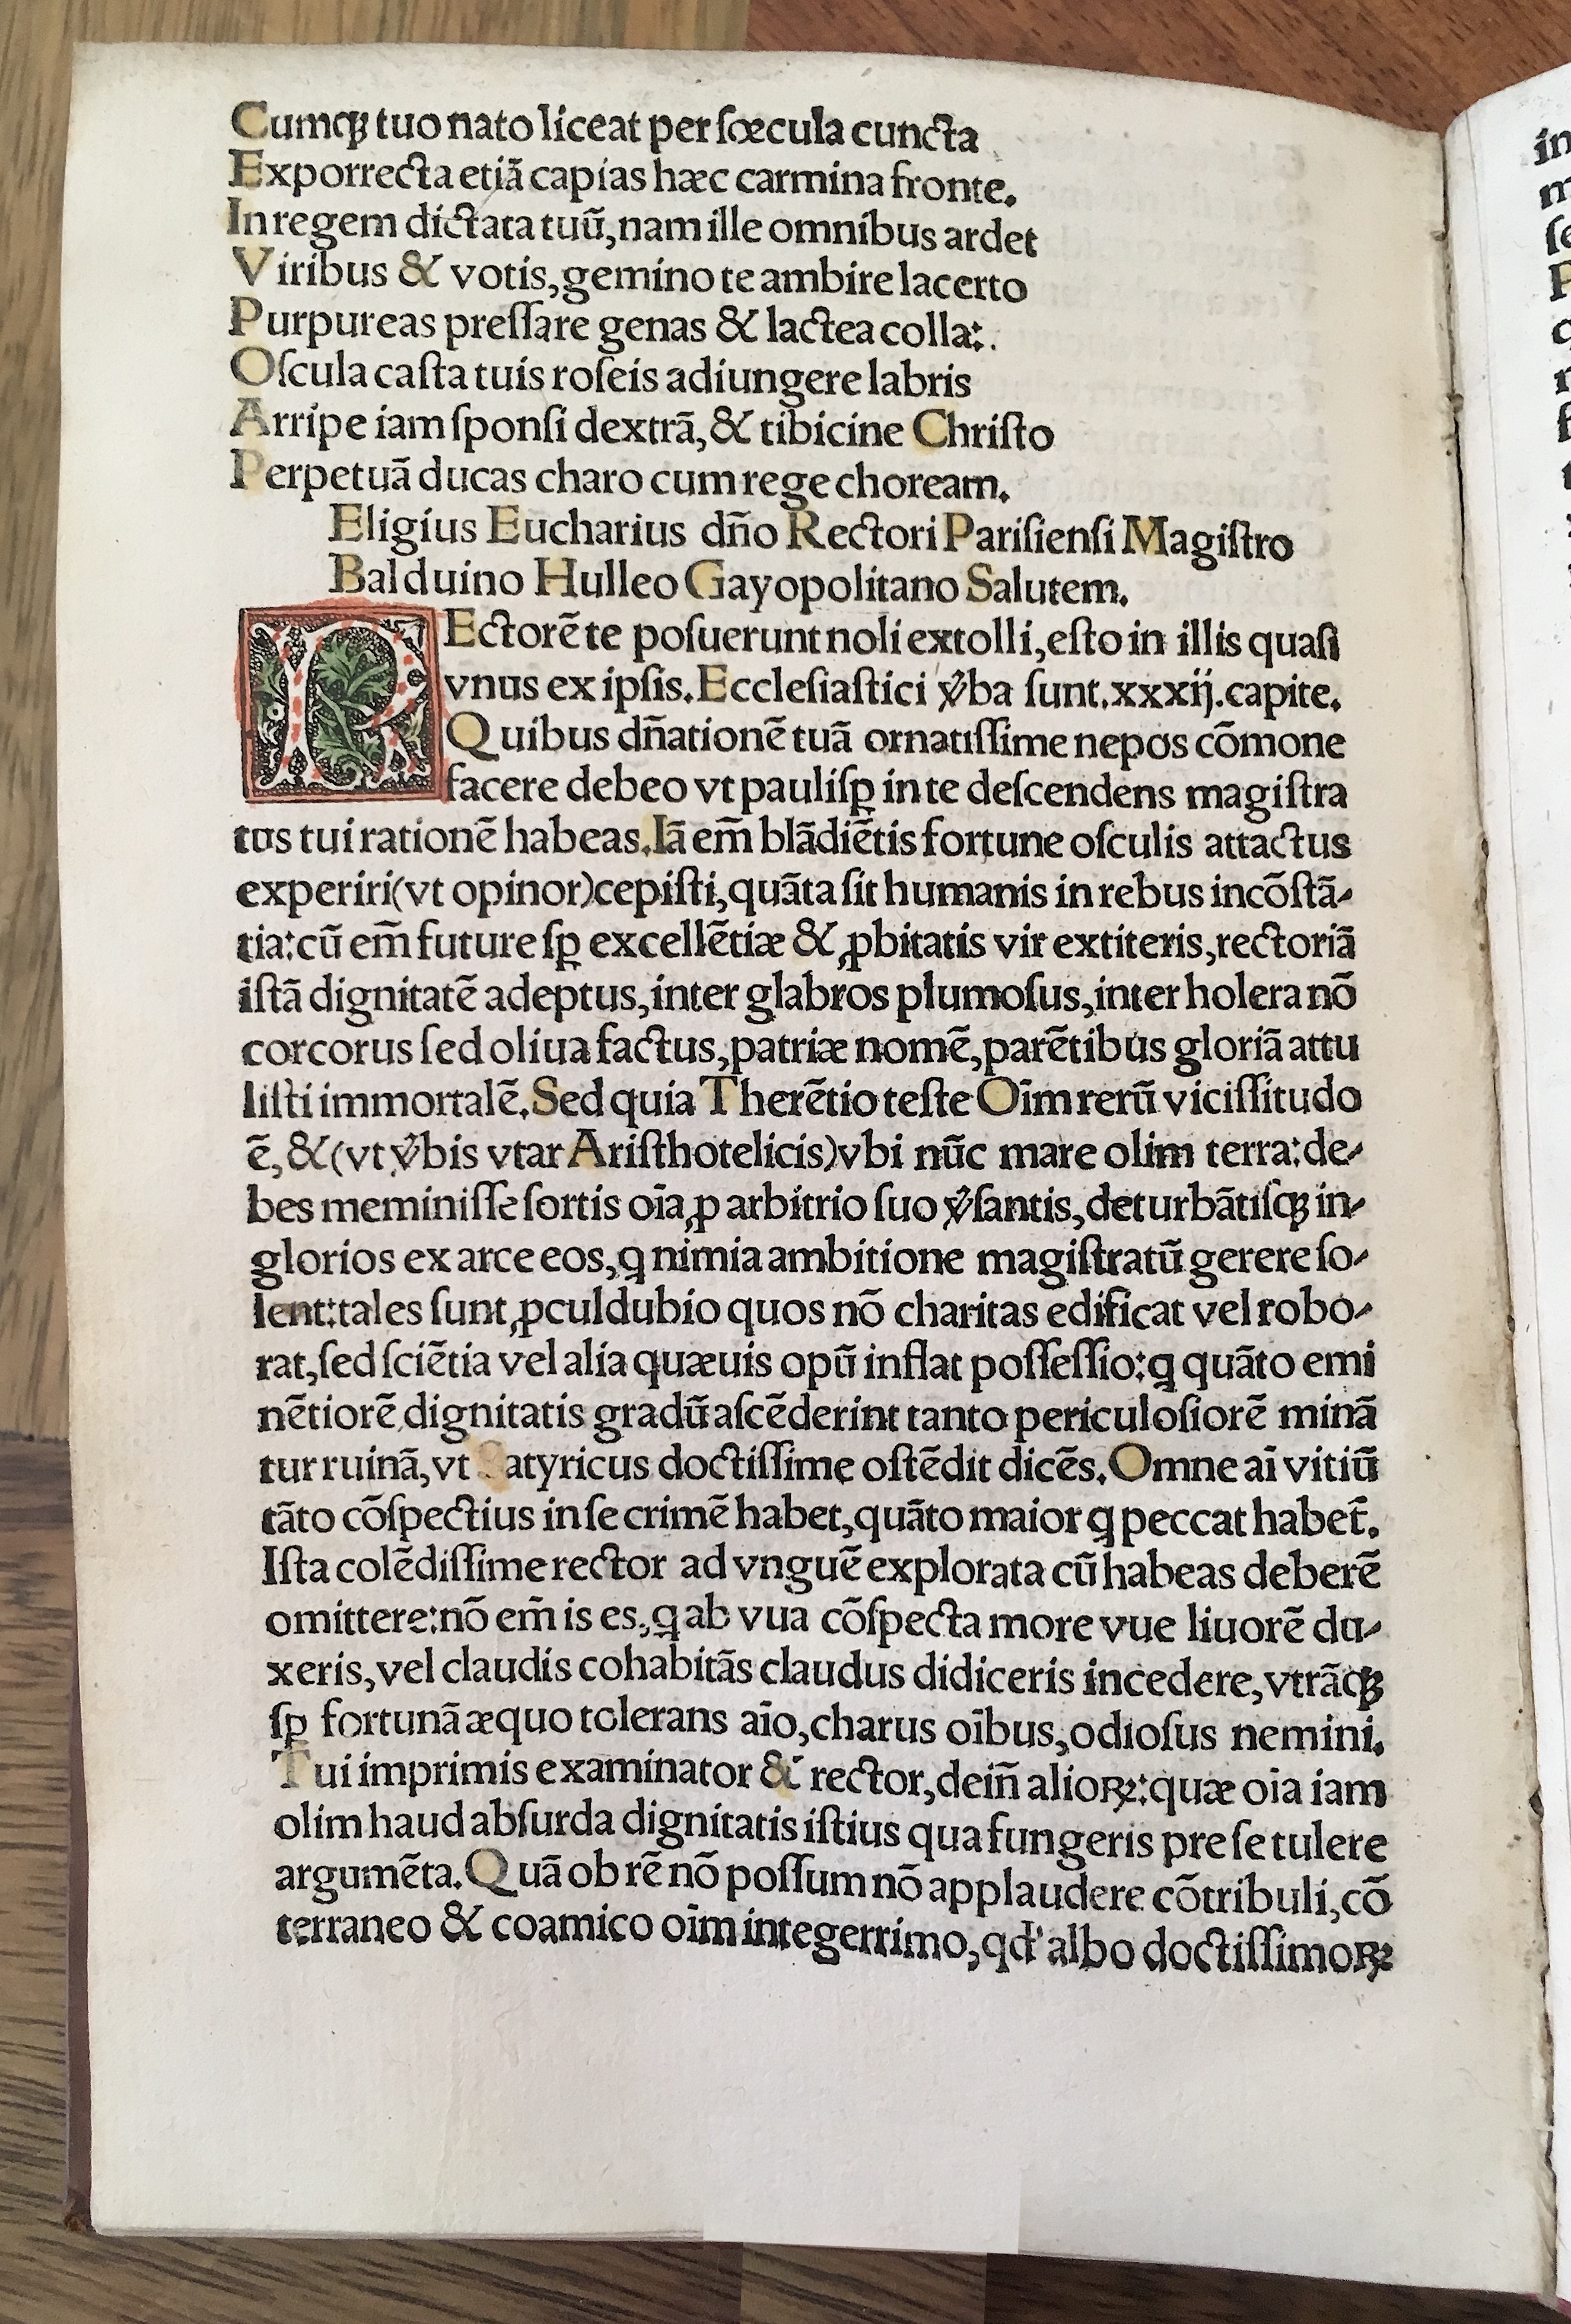 Cumqꝫ tuo nato liceat per ſœcula cuncta
Exporrecta etiã capias hæc carmina fronte.
In regem dictata tuũ,nam ille omnibus ardet
Viribus & votis,gemino te ambire lacerto
Purpureas preſſare genas & lactea colla:.
Oſcula caſta tuis roſeis adiungere labris
Arripe iam ſponſi dextrã,& tibicine Chriſto
Perpetuã ducas charo cum rege choream.
Eligius Eucharius dño Rectori Pariſienſi Magiſtro
Balduino Hulleo Gayopolitano Salutem.
REctorẽ te poſuerunt noli extolli,eſto in illis quaſi
vnus ex ipſis.Eccleſiaſtici v̾ba ſunt.xxxij.capite.
Quibus dñationẽ tuã ornatiſſime nepos cõmone
facere debeo vt pauliſꝑ in te deſcendens magiſtra
tus tui rationẽ habeas.Iã em̃ blãdiẽtis fortune oſculis attactus
experiri(vt opinor)cepiſti,quãta ſit humanis in rebus incõſtã⸗
tia:cũ em̃ future ſꝑ excellẽtiæ & ꝓbitatis vir extiteris,rectoriã
iſtã dignitatẽ adeptus,inter glabros plumoſus,inter holera nõ
corcorus ſed oliua factus,patriæ nomẽ,parẽtibus gloriã attu
liſti immortalẽ.Sed quia Therẽtio teſte Oĩm rerũ viciſſitudo
ẽ,&(vt v̾bis vtar Ariſthotelicis)vbi nũc mare olim terra:de⸗
bes meminiſſe ſortis oĩa ꝓ arbitrio ſuo v̾ſantis,deturbãtiſqꝫ in⸗
glorios ex arce eos,ꝗ nimia ambitione magiſtratũ gerere ſo⸗
lent:tales ſunt ꝓculdubio quos nõ charitas edificat vel robo⸗
rat,ſed ſciẽtia vel alia quæuis opũ inflat poſſeſſio:ꝗ quãto emi
nẽtiorẽ dignitatis gradũ aſcẽderint tanto periculoſiorẽ minã
tur ruinã,vt Satyricus doctiſſime oſtẽdit dicẽs.Omne aĩ vitiũ
tãto cõſpectius in ſe crimẽ habet,quãto maior ꝗ peccat habet̃.
Iſta colẽdiſſime rector ad vnguẽ explorata cũ habeas deberẽ
omittere:nõ em̃ is es,ꝗ ab vua cõſpecta more vue liuorẽ du⸗
xeris,vel claudis cohabitãs claudus didiceris incedere,vtrãqꝫ
ſꝑ fortunã æquo tolerans aĩo,charus oĩbus,odioſus nemini.
Tui imprimis examinator & rector,deiñ alioꝝ:quæ oĩa iam
olim haud abſurda dignitatis iſtius qua fungeris pre ſe tulere
argumẽta.Quã ob rẽ nõ poſſum nõ applaudere cõtribuli,cõ
terraneo & coamico oĩm integerrimo,qd' albo doctiſſimoꝝ